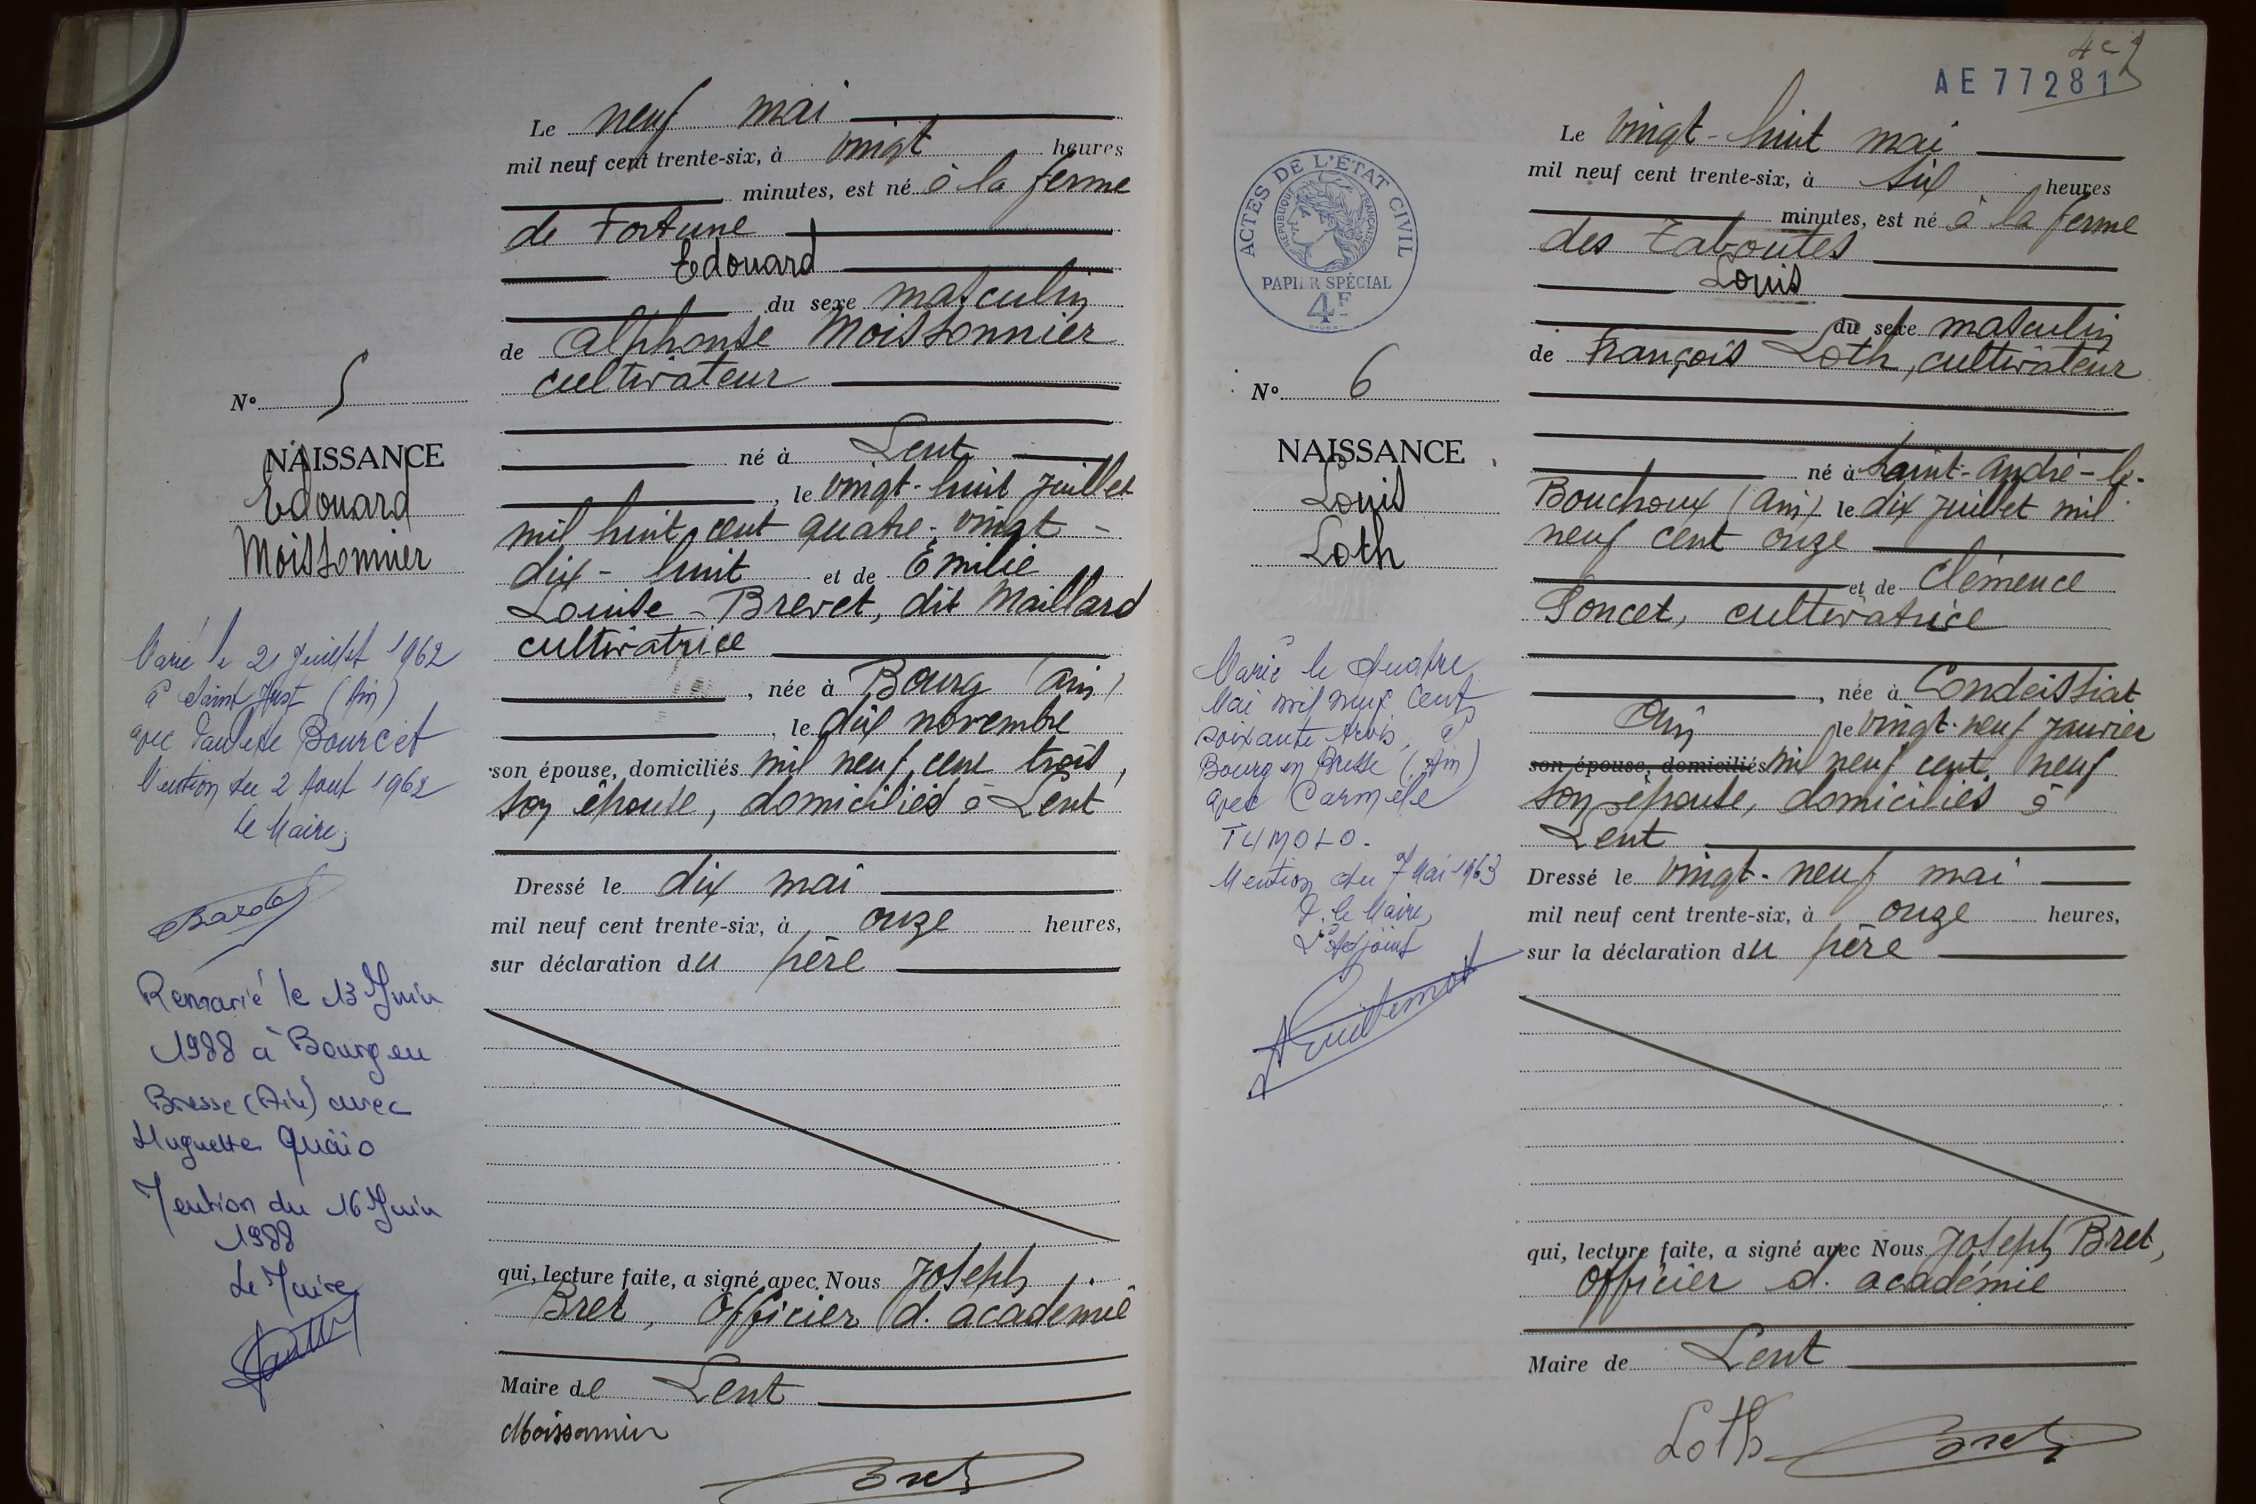 Le neuf mai
mil neuf cent trente-six, à vingt heures
minutes, est né à la ferme
de Fortune
Edouard
du sexe masculin
de Alphonse Moissonnier
cultivateur
N° 5
NAISSANCE
Edouard
Moissonnier
né à Lent
, le vingt-huit juillet
mil huit cent quatre-vingt-
dix-huit et de Emilie
Louise Brevet, dit Maillard
cultivatrice
, née à Bourg (Ain)
, le dix novembre
son épouse, domiciliés mil neuf cent trois,
son épouse, domiciliés à Lent
Dressé le dix mai
mil neuf cent trente-six, à onze heures,
sur déclaration du père
qui, lecture faite, a signé avec Nous Joseph
Bret, Officier d'académie
Maire de Lent
Moissonnier
Bret
Marié le 21 Juillet 1962
à Saint Just (Ain)
avec Paulette Bourcet
Mention du 2 Aout 1962
Le Maire,
Remarié le 13 Juin
1988 à Bourg en
Bresse (Ain) avec
Huguette Quaïo
Mention du 16 Juin
1988
Le Maire
AE 77281
Le vingt-huit mai
mil neuf cent trente-six, à six heures
minutes, est né à la ferme
des Taboutes
Louis
du sexe masculin
de François Loth, cultivateur
ACTES DE L'ÉTAT CIVIL
RÉPUBLIQUE FRANÇAISE
PAPIER SPÉCIAL
4F
N° 6
NAISSANCE
Louis
Loth
né à Saint-André-le-
Bouchoux (Ain) le dix juillet mil
neuf cent onze
et de Clémence
Poncet, cultivatrice
, née à Condeissiat
Ain le vingt-neuf janvier
son épouse, domiciliés mil neuf cent neuf
son épouse, domiciliés à
Lent
Dressé le vingt-neuf mai
mil neuf cent trente-six, à onze heures,
sur la déclaration du père
qui, lecture faite, a signé avec Nous Joseph Bret,
Officier d'académie
Maire de Lent
Loth Bret
Marié le Quatre
Mai mil neuf cent
soixante trois, à
Bourg en Bresse (Ain)
avec Carmèle
TUMOLO.
Mention du 7 Mai 1963
P. le Maire,
L'Adjoint